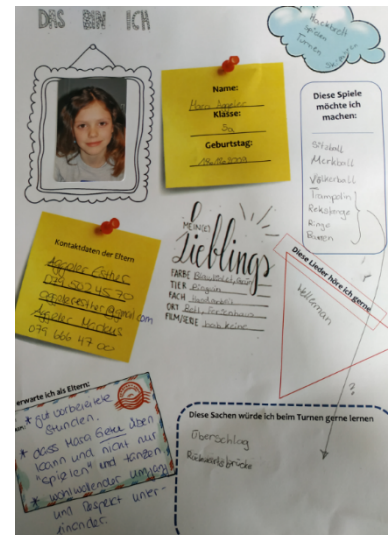 DAS BIN ICH
Hackbrett
spielen
Turnen
Name:
Mara Aggeler
Klasse:
5a
Geburtstag:
Diese Spiele
möchte ich
machen:
Sitzball
Merkball
Völkerball
Trampolin
Reckstange
Ringe
Barren
Kontaktdaten der Eltern
Aggeler Esther
079 502 45 70
Aggeler Markus
079 666 47 00
MEIN(E)
Lieblings
FARBE
TIER Pinguin
FACH
ORT Bett, Ferienhaus
FILM/SERIE hab keine
Diese Lieder höre ich gerne
Wellerman
erwarte ich als Eltern:
* gut vorbereitete
Stunden.
* dass Mara Geräte üben
kann und nicht nur
"spielen" und tanzen
* wohlwollender Umgang
und Respekt unter-
einander.
?
Diese Sachen würde ich beim Turnen gerne lernen
Überschlag
Rückwärtsbrücke